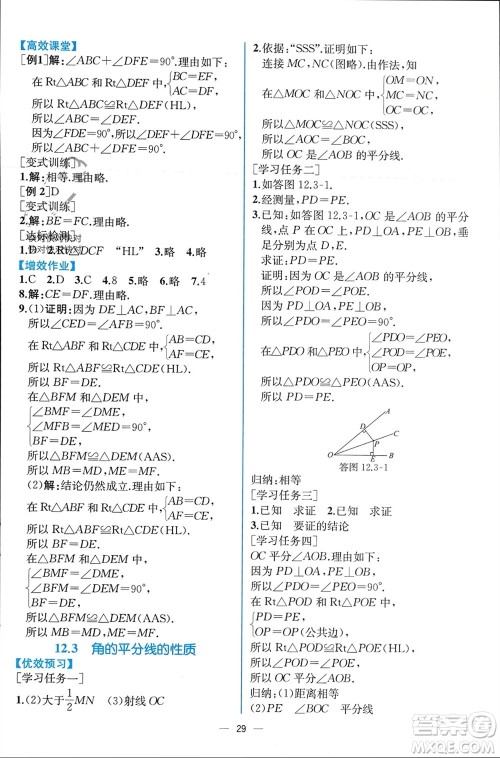 【高效课堂】
[例1]解：∠ABC＋∠DFE＝90°.理由如下：
在 Rt△ABC 和 Rt△DEF 中，{BC＝EF，AC＝DF，
所以 Rt△ABC≌Rt△DEF(HL).
所以∠ABC＝∠DEF.
因为∠FDE＝90°，所以∠DEF＋∠DFE＝90°.
所以∠ABC＋∠DFE＝90°.
[变式训练]
1.解：相等.理由略.
[例 2]D
[变式训练]
2.解：BE＝FC.理由略.
[达标检测]
1.D 2.Rt△DCF “HL” 3.略 4.略 5.略
【增效作业】
1.C 2.D 3.C 4.8 5.略 6.略 7.4
8.解：CE＝DF.理由略.
9.(1)证明：因为 DE⊥AC，BF⊥AC，
所以∠CED＝∠AFB＝90°.
在 Rt△ABF 和 Rt△CDE 中，{AB＝CD，AF＝CE，
所以 Rt△ABF≌Rt△CDE(HL).
所以 BF＝DE.
在△BFM 和△DEM 中，
{∠BMF＝∠DME，
∠BFM＝∠DEM＝90°，
BF＝DE，
所以△BFM≌△DEM(AAS).
所以 MB＝MD，ME＝MF.
(2)解：结论仍然成立.理由如下：
在 Rt△ABF 和 Rt△CDE 中，{AB＝CD，AF＝CE，
所以 Rt△ABF≌Rt△CDE(HL).
所以 BF＝DE.
在△BFM 和△DEM 中，
{∠BFM＝∠DEM＝90°，
∠BMF＝∠DME，
BF＝DE，
所以△BFM≌△DEM(AAS).
所以 MB＝MD，ME＝MF.
12.3 角的平分线的性质
【优效预习】
[学习任务一]
1.(2)大于1/2MN (3)射线 OC
2.依据：“SSS”.证明如下：
连接 MC，NC(图略).由作法，知
在△MOC 和△NOC 中，{OM＝ON，MC＝NC，OC＝OC，
所以△MOC≌△NOC(SSS).
所以∠AOC＝∠BOC.
所以 OC 是∠AOB 的平分线.
[学习任务二]
1.如答图 12.3-1.
2.经测量，PD＝PE.
3.已知：如答图 12.3-1，∠AOC＝∠BOC，点 P 在 OC 上，PD⊥OA，PE⊥OB，垂足分别为点 D，E.
求证：PD＝PE.
证明：因为 OC 是∠AOB 的平分线，
所以∠POD＝∠POE.
因为 PD⊥OA，PE⊥OB，
所以∠PDO＝∠PEO.
在△PDO 和△PEO 中，{∠PDO＝∠PEO，∠POD＝∠POE，OP＝OP，
所以△PDO≌△PEO(AAS).
所以 PD＝PE.
A
D
C
P
O
E
B
答图 12.3-1
归纳：相等
[学习任务三]
1.已知 求证
2.已知 要证的结论
[学习任务四]
OC 平分∠AOB.理由如下：
因为 PD⊥OA，PE⊥OB，
所以∠PDO＝∠PEO＝90°.
在 Rt△PDO 和 Rt△PEO 中，
{PD＝PE，
OP＝OP(公共边)，
所以 Rt△PDO≌Rt△PEO(HL).
所以∠POD＝∠POE.
所以 OC 平分∠AOB.
归纳：(1)距离相等
(2)PE ∠BOC ∠AOB
29